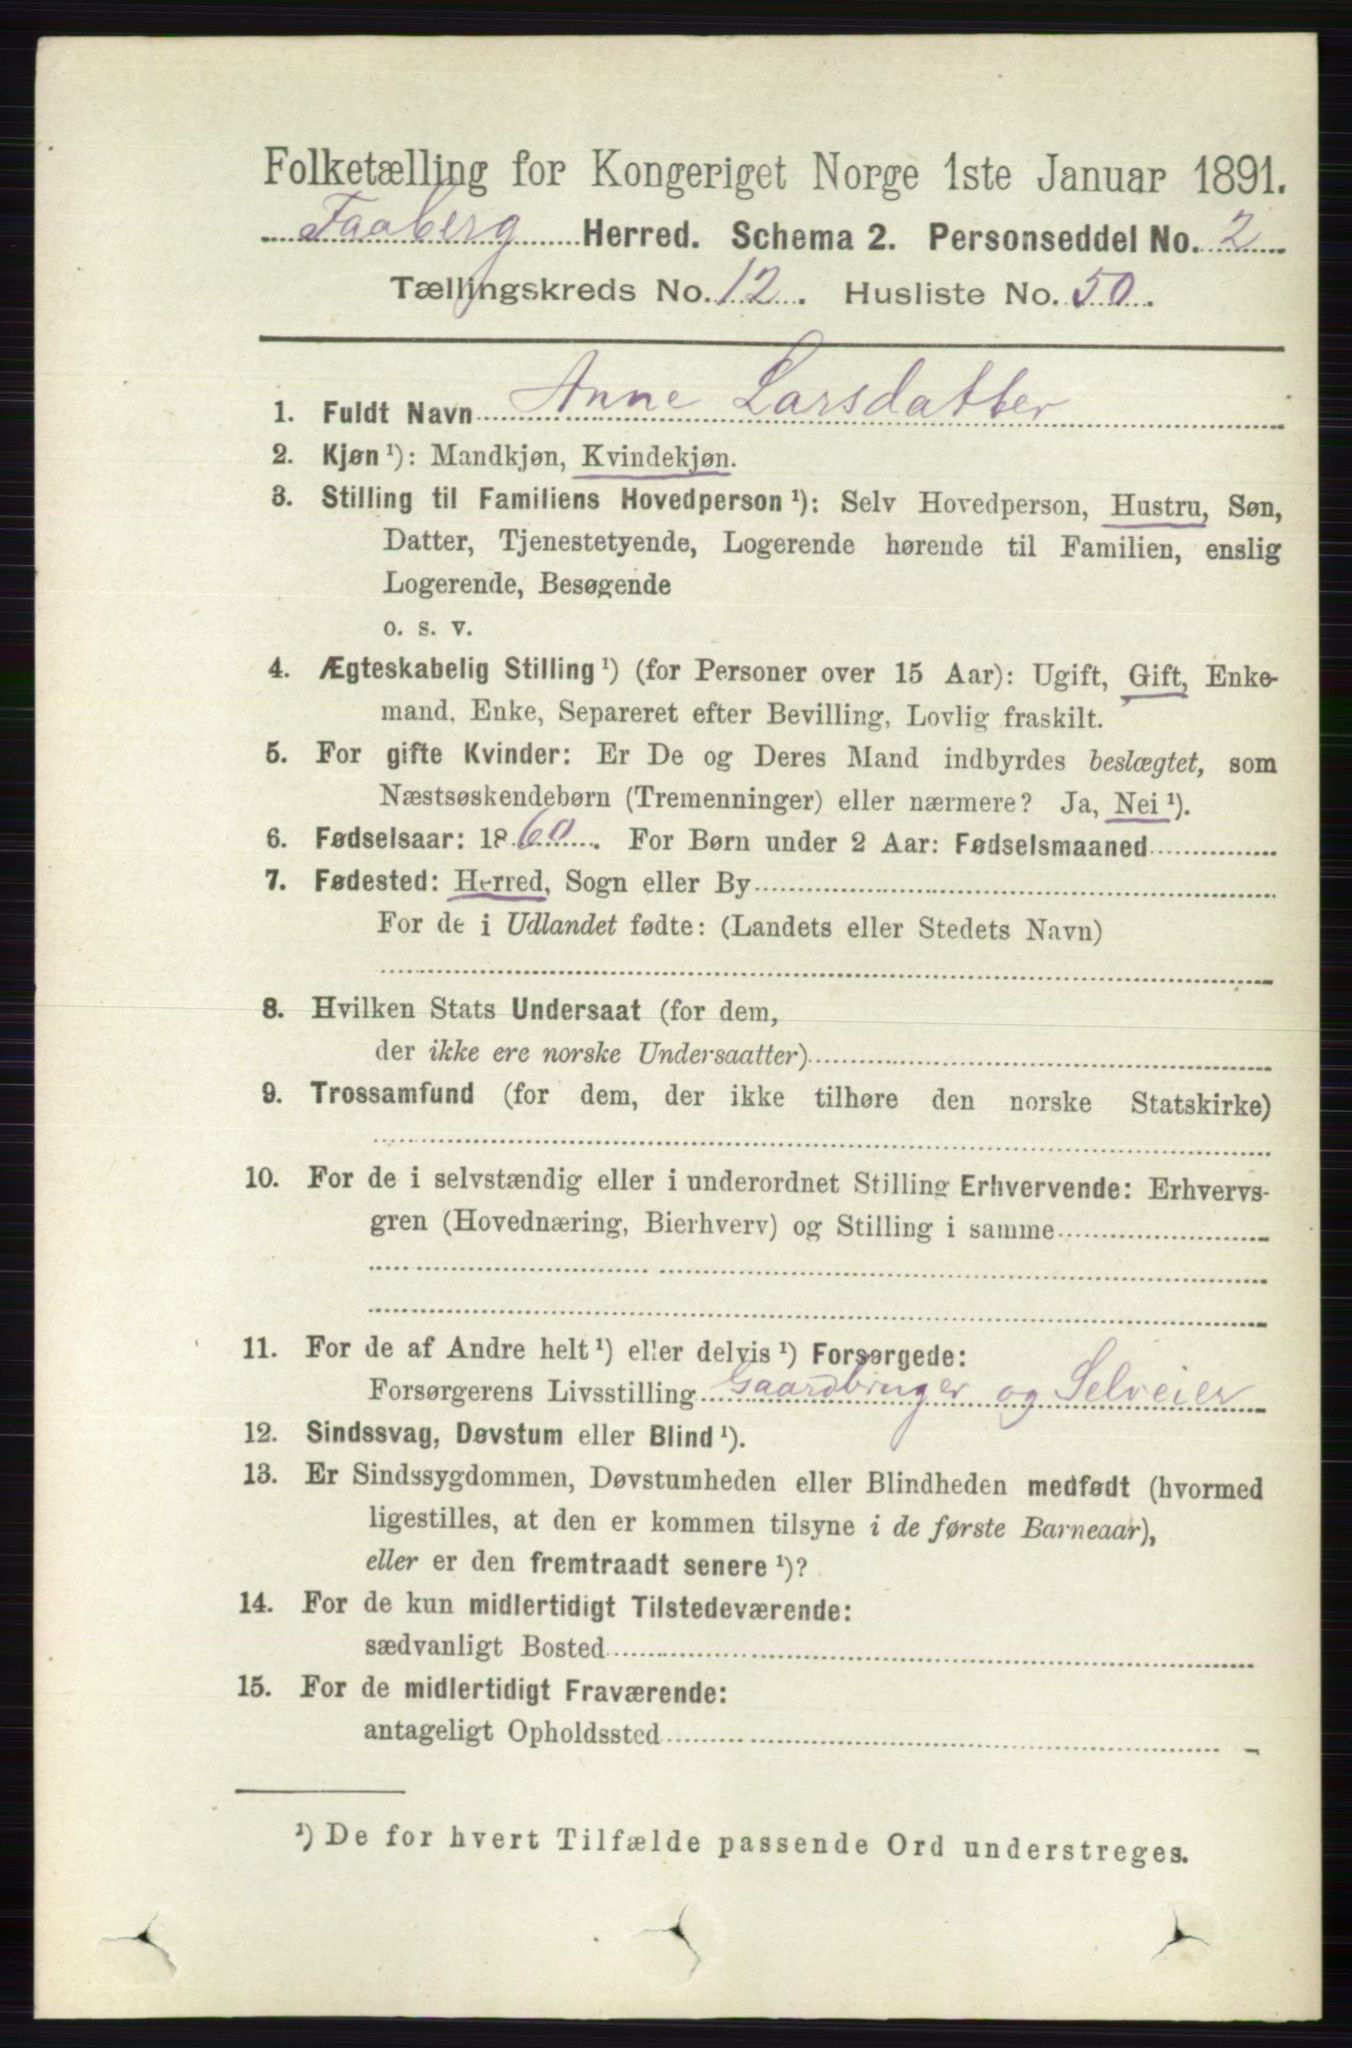 Folketælling for Kongeriget Norge 1ste Januar 1891.
Faaberg Herred. Schema 2. Personseddel No. 2
Tællingskreds No. 12. Husliste No. 50.
1. Fuldt Navn Anne Larsdatter
2. Kjøn ¹): Mandkjøn, Kvindekjøn.
3. Stilling til Familiens Hovedperson ¹): Selv Hovedperson, Hustru, Søn,
Datter, Tjenestetyende, Logerende hørende til Familien, enslig
Logerende, Besøgende
o. s. v.
4. Ægteskabelig Stilling ¹) (for Personer over 15 Aar): Ugift, Gift, Enke-
mand, Enke, Separeret efter Bevilling, Lovlig fraskilt.
5. For gifte Kvinder: Er De og Deres Mand indbyrdes beslægtet, som
Næstsøskendebørn (Tremenninger) eller nærmere? Ja, Nei ¹).
6. Fødselsaar: 1860. For Børn under 2 Aar: Fødselsmaaned
7. Fødested: Herred, Sogn eller By
For de i Udlandet fødte: (Landets eller Stedets Navn)
8. Hvilken Stats Undersaat (for dem,
der ikke ere norske Undersaatter)
9. Trossamfund (for dem, der ikke tilhøre den norske Statskirke)
10. For de i selvstændig eller i underordnet Stilling Erhvervende: Erhvervs-
gren (Hovednæring, Bierhverv) og Stilling i samme
11. For de af Andre helt ¹) eller delvis ¹) Forsørgede:
Forsørgerens Livsstilling Gaardbruger og Selveier
12. Sindssvag, Døvstum eller Blind ¹).
13. Er Sindssygdommen, Døvstumheden eller Blindheden medfødt (hvormed
ligestilles, at den er kommen tilsyne i de første Barneaar),
eller er den fremtraadt senere ¹)?
14. For de kun midlertidigt Tilstedeværende:
sædvanligt Bosted
15. For de midlertidigt Fraværende:
antageligt Opholdssted
¹) De for hvert Tilfælde passende Ord understreges.